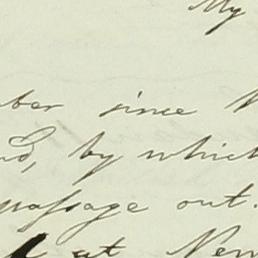 My
ber since
by which
passage out.
at New